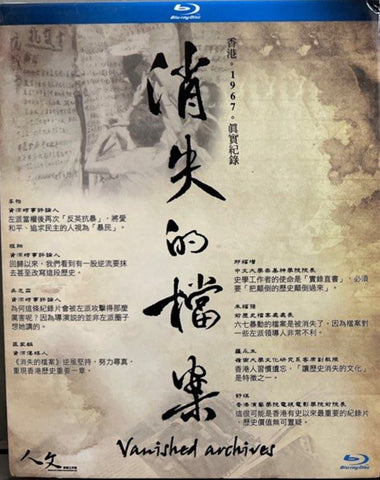 Blu-ray Disc
香港。1967。真實紀錄
消失的檔案
李怡
資深時事評論人
左派當權後再次「反英抗暴」，將愛
和平、追求民主的人視為「暴民」。
程翔
資深時事評論人
回歸以來，我們看到有一股逆流要抹
去甚至改寫這段歷史。
吳志森
資深時事評論人
為何這條紀錄片會被左派攻擊得那麼
厲害呢？因為導演說的並非左派圈子
想她講的。
區家麟
資深傳媒人
《消失的檔案》逆風堅持，努力尋真，
重現香港歷史重要一章。
邢福增
中文大學崇基神學院院長
史學工作者的使命是「實錄直書」，必須
要「把顛倒的歷史顛倒過來」。
朱福強
前歷史檔案處處長
六七暴動的檔案是被消失了，因為檔案對
一些左派領導人非常不利。
羅永生
嶺南大學文化研究系客席副教授
香港人習慣遺忘，「讓歷史消失的文化」
是特徵之一。
舒琪
香港演藝學院電視電影學院前院長
這很可能是香港有史以來最重要的紀錄片，
歷史價值無可置疑。
Vanished archives
人文
Blu-ray Disc